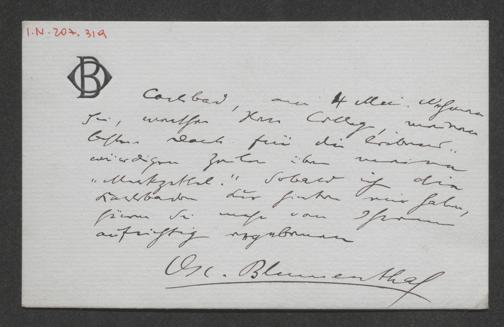 I.N. 207.319
OB
Carlsbad, am 4 Mai. Nehmen
Sie, werther Herr College, meinen
besten Dank für die liebens-
würdigen Zeilen über meine
"Merkzettel." Sobald ich die
Karlsbader Kur hinter mir habe,
hören Sie mehr von Ihrem
aufrichtig ergebenen
Osc. Blumenthal